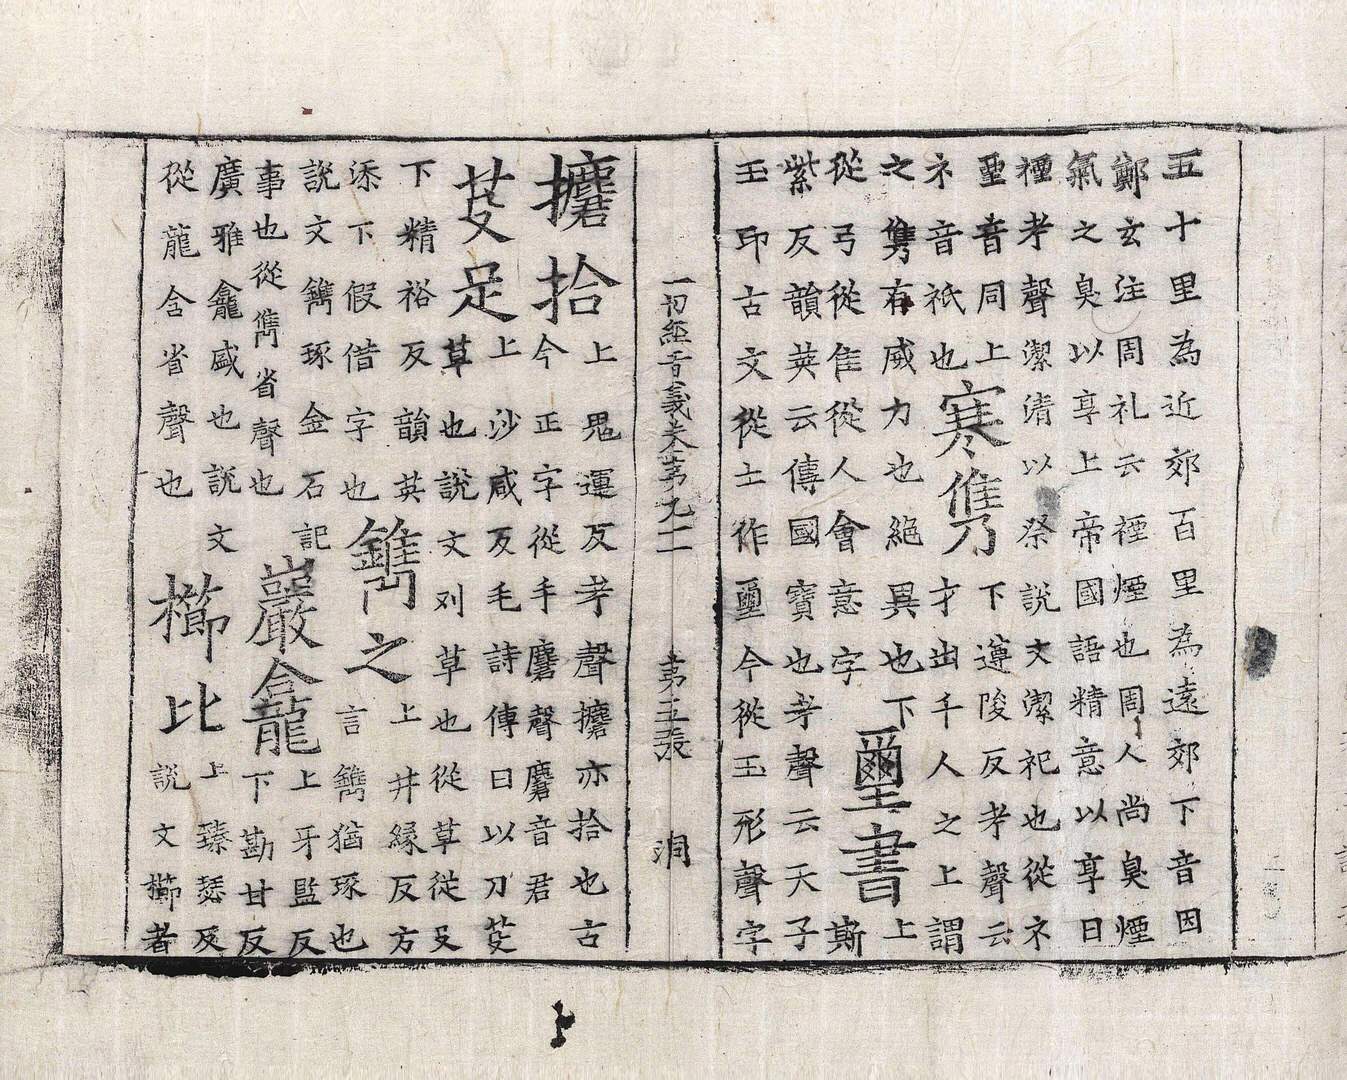 五十里為近郊百里為遠郊下音因
鄭玄注周礼云禋煙也周人尚臭煙
氣之臭以享上帝國語精意以享曰
禋考聲潔清以祭說文潔祀也從礻
垔音同上
礻音祇也
寒儁
下遵陵反考聲云
才出千人之上謂
之儁有威力也絕異也下
從弓從隹從人會意字
璽書
上
斯
紫反韻英云傳國寶也考聲云天子
玉印古文從土作壐今從玉形聲字
一切經音義卷第九二 第三張 洞
攈拾
上愳運反考聲攈亦拾也古
今正字從手麏聲麏音君
芟足
上沙咸反毛詩傳曰以刀芟
草也說文刈草也從草從殳
下精裕反韻英
添下假借字也
鐫之
上井緣反方
言鐫猶琢也
說文鐫琢金石記
事也從雋省聲也
巖龕
上牙監反
下勘甘反
廣雅龕盛也說文
從龍含省聲也
櫛比
上臻瑟反
說文櫛者